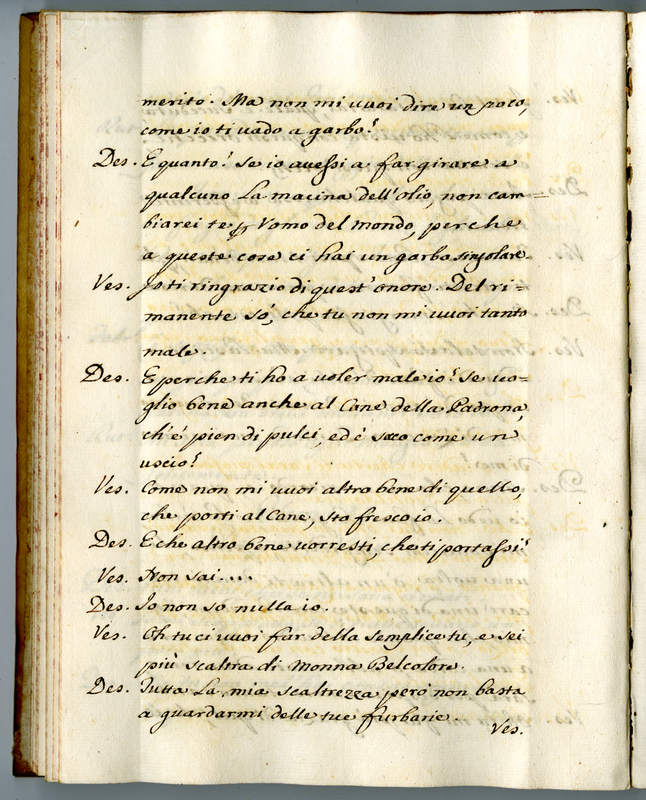 merito. Ma non mi vuoi dire un poco,
come io ti vado a garbo?
Des. E quanto! Se io avessi a far girare a
qualcuno La macina dell'olio, non cam=
biarei te p Vomo del mondo, perche
a queste cose ci hai un garbo singolare.
Ves. Io ti ringrazio di quest'onore. Del ri=
manente só, che tu non mi vuoi tanto
male.
Des. E perche ti ho a voler male io? Se vo=
glio bene anche al Cane della Padrona,
ch'é pien di pulci, ed é seco come un
uscio?
Ves. Come non mi vuoi altro bene di quello,
che porti al Cane, sto fresco io.
Des. E che altro bene vorresti, che ti portassi?
Ves. Non sai....
Des. Io non so nulla io.
Ves. Oh tu ci vuoi far della semplice tu, e sei
più scaltra di Monna Belcolore.
Des. Tutta La mia scaltrezza peró non basta
a guardarmi delle tue furbarie.
Ves.